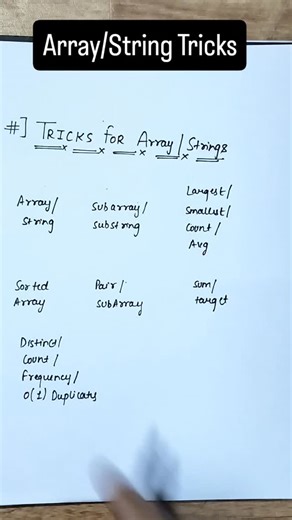 Array/String Tricks
#] TRICKS for Array/Strings
Array/
String
Subarray/
Substring
Largest/
Smallest/
Count/
Avg
Sorted
Array
Pair/
SubArray
Sum/
target
Distinct/
Count/
Frequency/
O(1) Duplicates